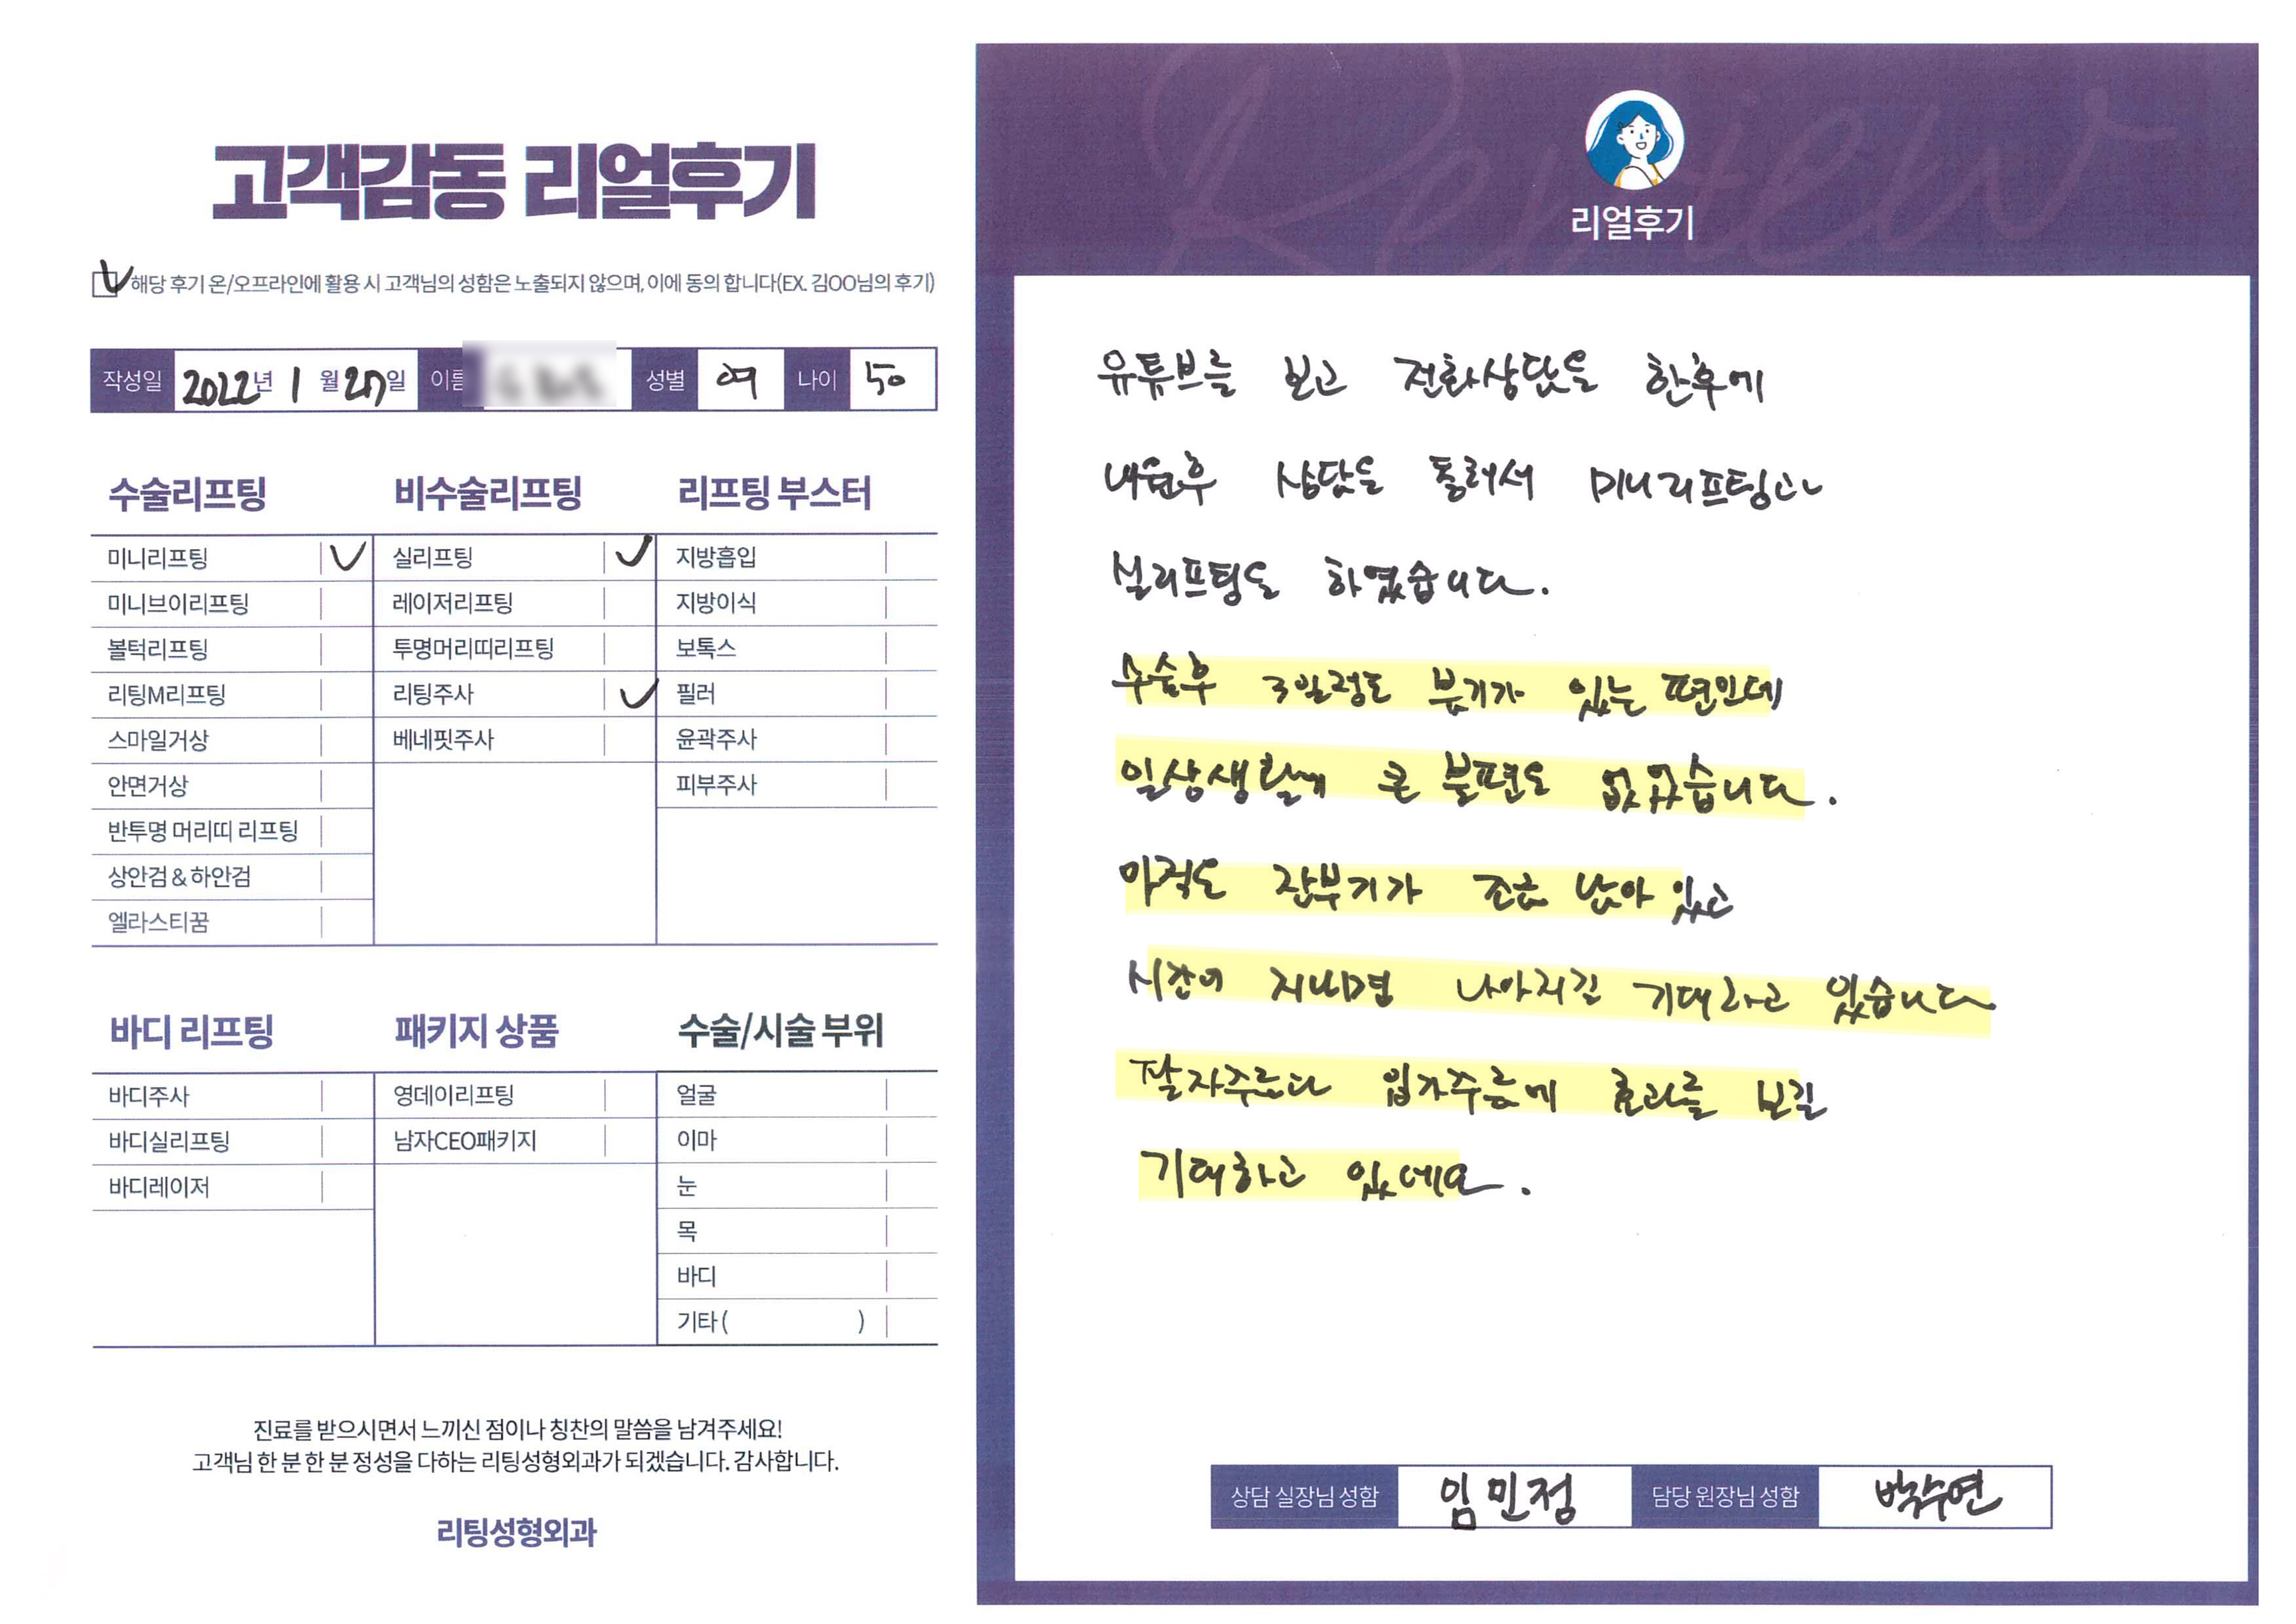 고객감동 리얼후기
해당 후기 온/오프라인에 활용 시 고객님의 성함은 노출되지 않으며, 이에 동의 합니다(EX. 김OO님의 후기)
작성일 2022년 1월 27일 이름 성별 여 나이 50
수술리프팅
미니리프팅
미니브이리프팅
볼턱리프팅
리팅M리프팅
스마일거상
안면거상
반투명 머리띠 리프팅
상안검 & 하안검
엘라스티꿈
비수술리프팅
실리프팅
레이저리프팅
투명머리띠리프팅
리팅주사
베네핏주사
리프팅 부스터
지방흡입
지방이식
보톡스
필러
윤곽주사
피부주사
바디 리프팅
바디주사
바디실리프팅
바디레이저
패키지 상품
영데이리프팅
남자CEO패키지
수술/시술 부위
얼굴
이마
눈
목
바디
기타 ( )
진료를 받으시면서 느끼신 점이나 칭찬의 말씀을 남겨주세요!
고객님 한 분 한 분 정성을 다하는 리팅성형외과가 되겠습니다. 감사합니다.
리팅성형외과
Review
리얼후기
유튜브를 보고 전화상담을 한후에
내원후 상담을 통해서 미니리프팅과
실리프팅을 하였습니다.
수술후 3일정도 붓기가 있는 편인데
일상생활에 큰 불편은 없었습니다.
아직도 잔부기가 조금 남아 있고
시간이 지나면 나아지길 기대하고 있습니다
팔자주름과 입가주름에 효과를 보길
기대하고 있네요.
상담 실장님 성함 임민정 담당 원장님 성함 박수연